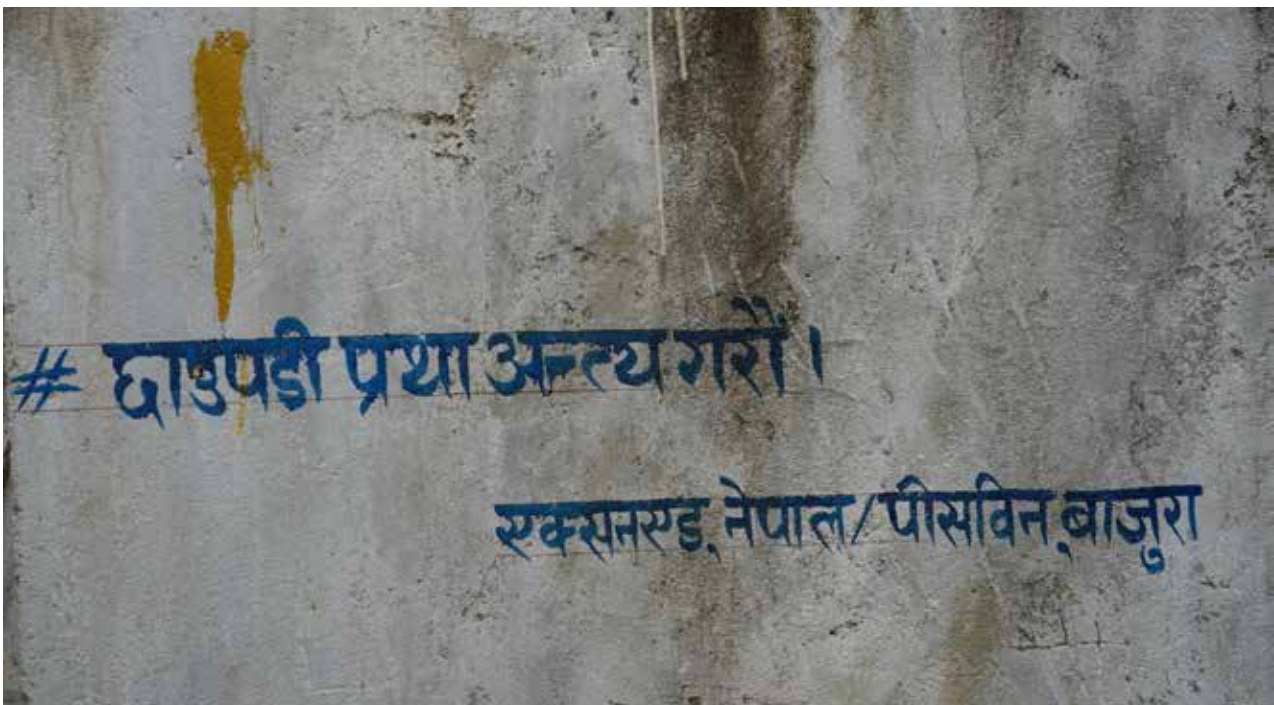 # छाउपडी प्रथा अन्त्य गरौं ।
एक्सनएड, नेपाल/पीसविन, बाजुरा